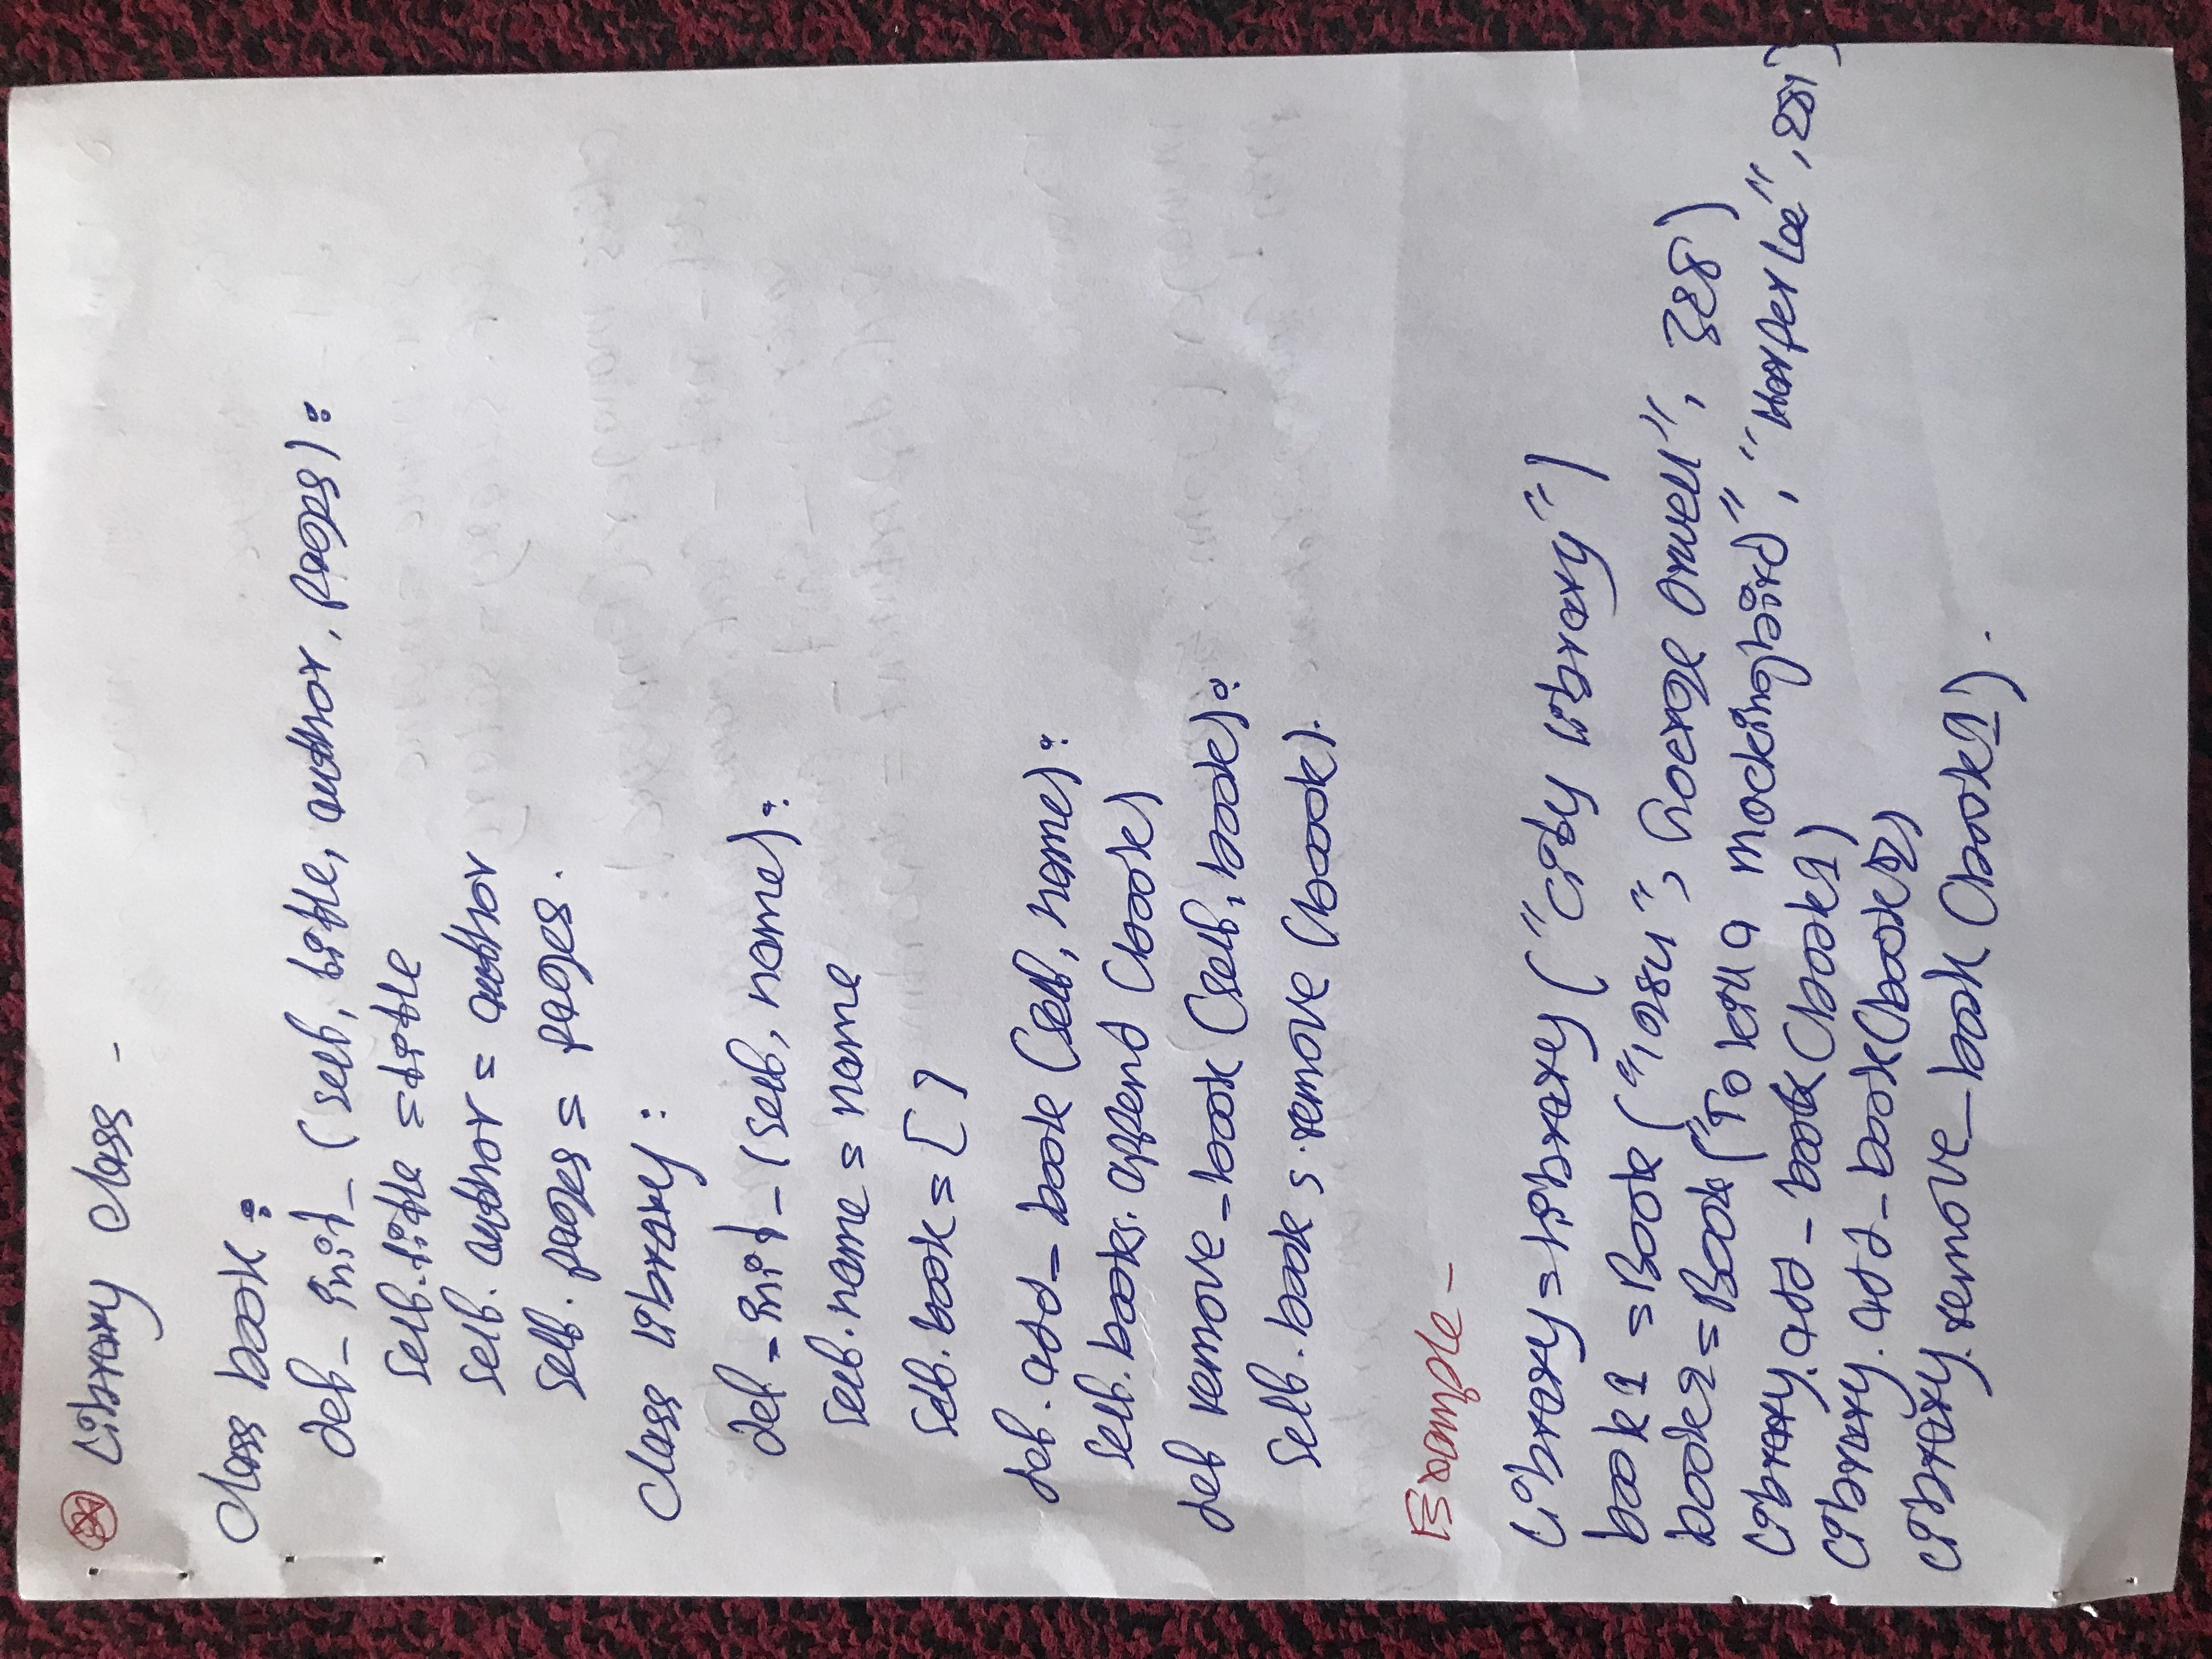 Library class -
class book:
def_init_(self, title, author, pages):
self.title = title
self.author = author
self.pages = pages.
class library:
def_init_(self, name):
self.name = name
self.book = []
def.add_book (self, name):
self.books.append (book)
def remove_book (self, book):
self.book s.remove (boook).
Example -
Library=Library ("City Library")
book1 =Book ("1984", George Orwell", 328)
book2=Book ("To kill a mockingbird", "Harper Lee", 281)
Library.add_book (book1)
Library.add_book(book2)
Library.remove_book (book1).